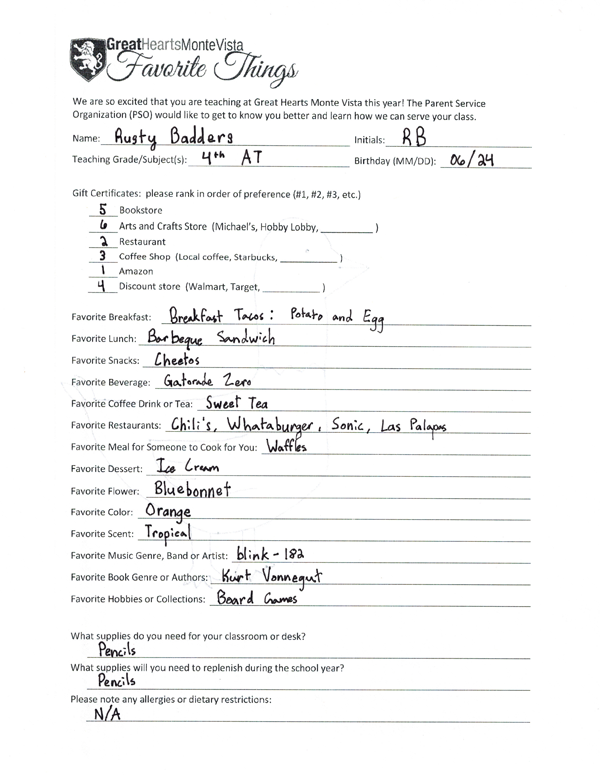 GreatHeartsMonteVista
Favorite Things
We are so excited that you are teaching at Great Hearts Monte Vista this year! The Parent Service
Organization (PSO) would like to get to know you better and learn how we can serve your class.
Name: Rusty Badders Initials: RB
Teaching Grade/Subject(s): 4th AT Birthday (MM/DD): 06/24
Gift Certificates: please rank in order of preference (#1, #2, #3, etc.)
5 Bookstore
6 Arts and Crafts Store (Michael's, Hobby Lobby, __________ )
2 Restaurant
3 Coffee Shop (Local coffee, Starbucks, __________ )
1 Amazon
4 Discount store (Walmart, Target, __________ )
Favorite Breakfast: Breakfast Tacos: Potato and Egg
Favorite Lunch: Barbeque Sandwich
Favorite Snacks: Cheetos
Favorite Beverage: Gatorade Zero
Favorite Coffee Drink or Tea: Sweet Tea
Favorite Restaurants: Chili's, Whataburger, Sonic, Las Palapas
Favorite Meal for Someone to Cook for You: Waffles
Favorite Dessert: Ice Cream
Favorite Flower: Bluebonnet
Favorite Color: Orange
Favorite Scent: Tropical
Favorite Music Genre, Band or Artist: blink-182
Favorite Book Genre or Authors: Kurt Vonnegut
Favorite Hobbies or Collections: Board Games
What supplies do you need for your classroom or desk?
Pencils
What supplies will you need to replenish during the school year?
Pencils
Please note any allergies or dietary restrictions:
N/A